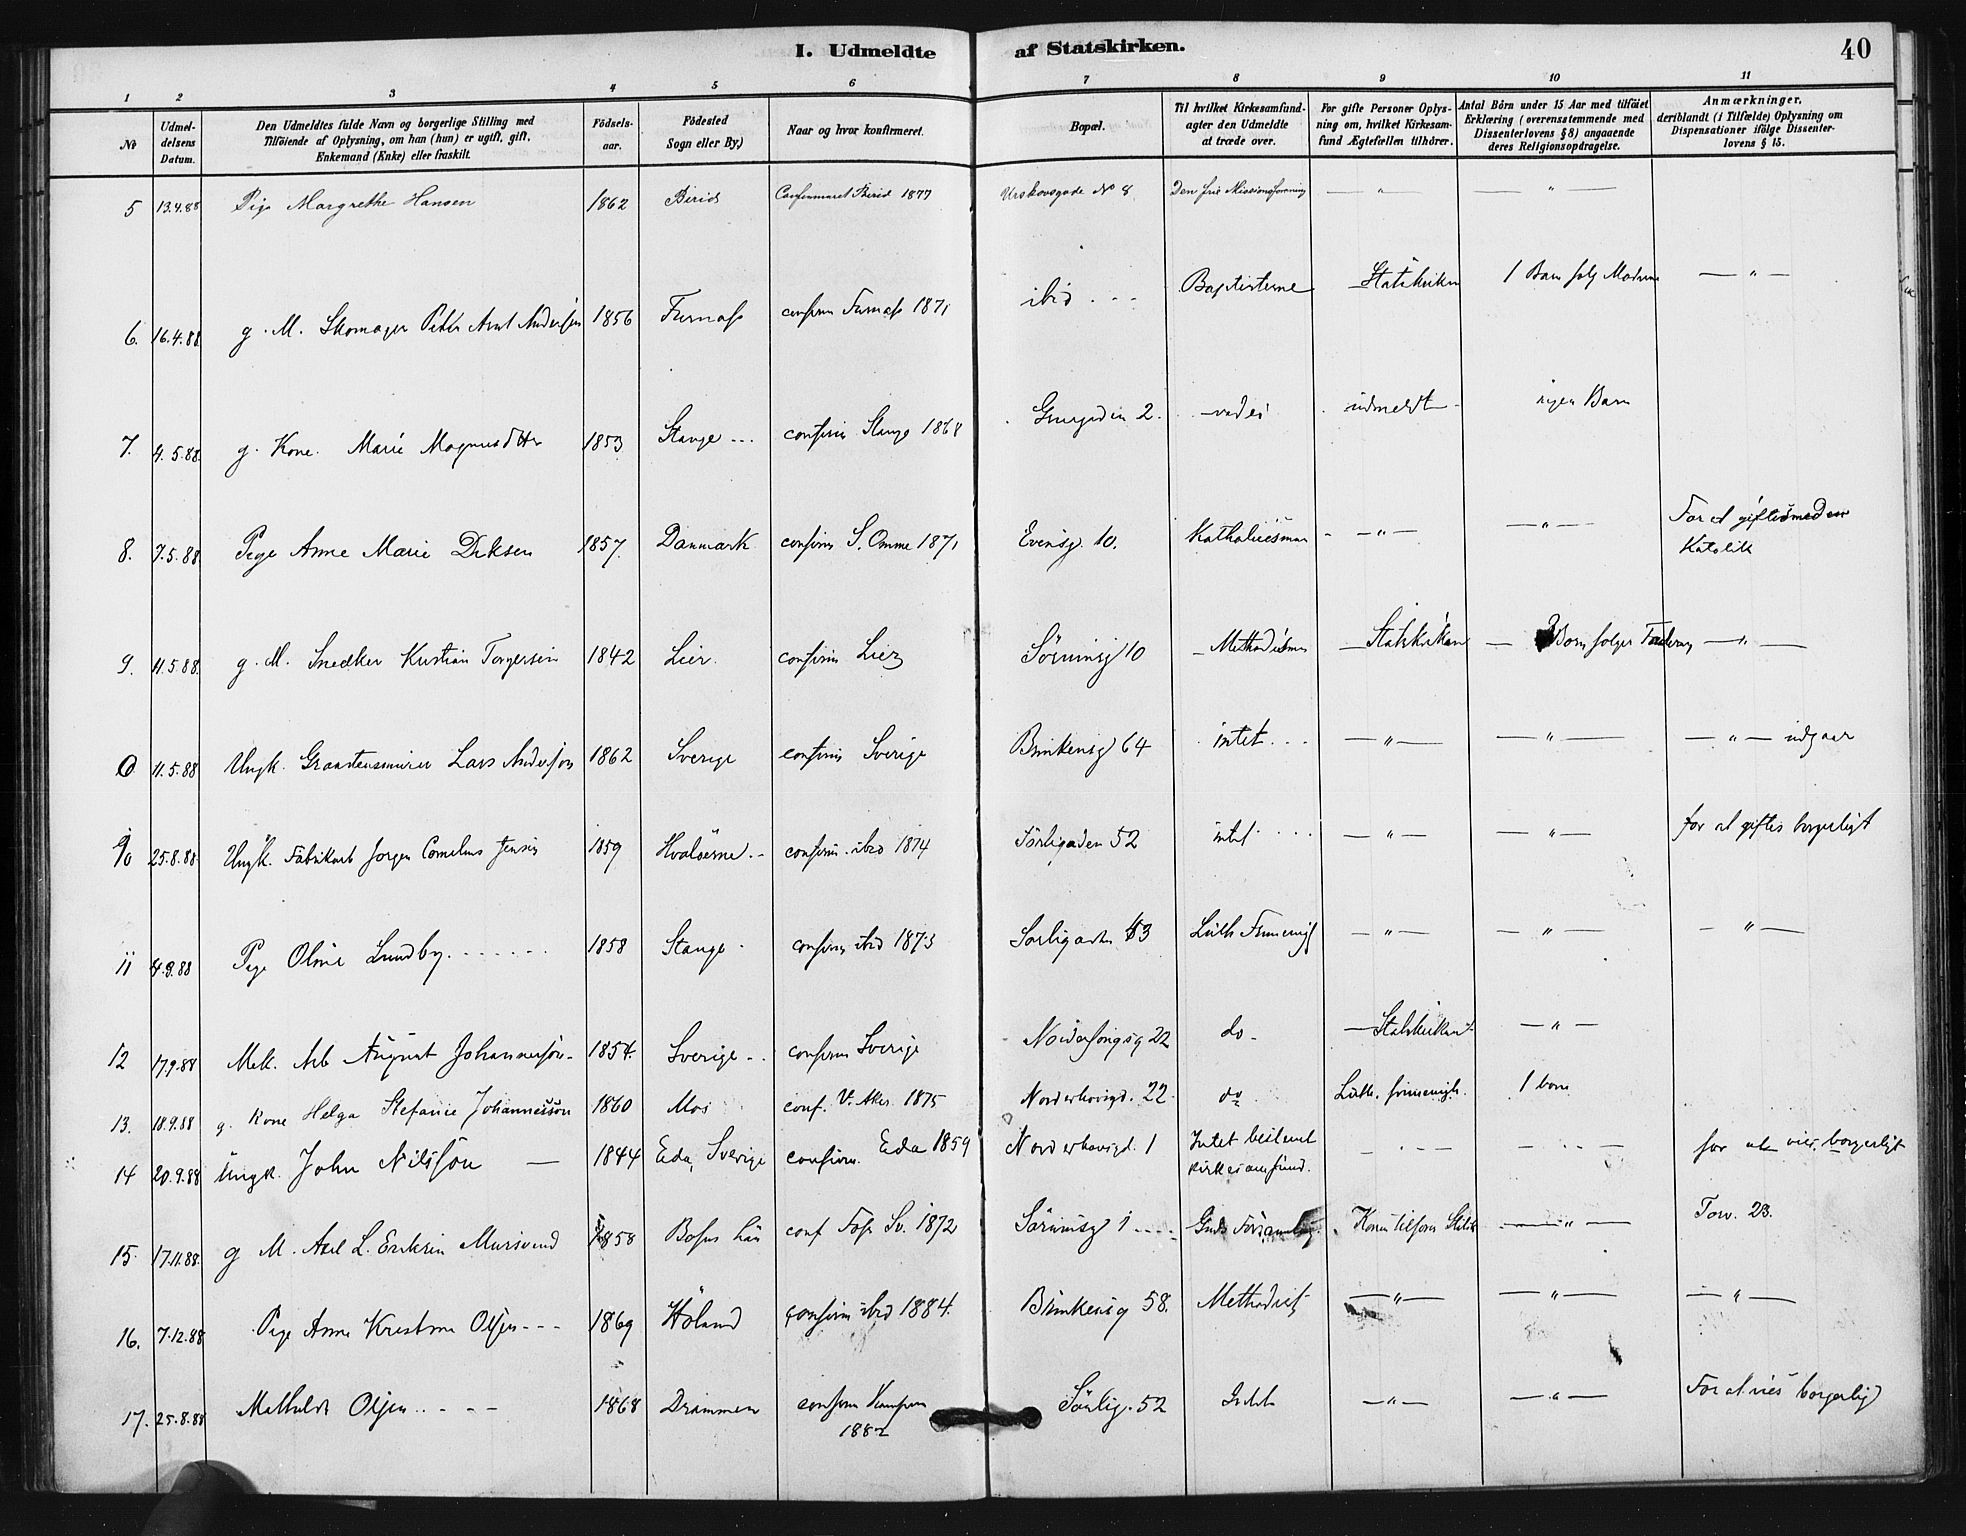 I. Udmeldte af Statskirken. 40
1 2 3 4 5 6 7 8 9 10 11
No
Udmeldelsens Datum.
Den Udmeldtes fulde Navn og borgerlige Stilling med
Tilføiende af Oplysning, om han (hun) er ugift, gift,
Enkemand (Enke) eller fraskilt.
Fødselsaar.
Fødested
Sogn eller By.)
Naar og hvor konfirmeret.
Bopæl.
Til hvilket Kirkesamfund-
agter den Udmeldte
at træde over.
For gifte Personer Oplys-
ning om, hvilket Kirkesam-
fund Ægtefællen tilhører.
Antal Børn under 15 Aar med tilføiet
Erklæring (overensstemmende med
Dissenterlovens § 8) angaaende
deres Religionsopdragelse.
Anmærkninger,
deriblandt (i Tilfælde) Oplysning om
Dispensationer ifølge Dissenter-
lovens § 15.
5 13.4.88 Pige Margrethe Hansen 1862 Birid Confirmeret Birid 1877 Urskovsgade No 8 Den frie Missionsforening — " — — " —
6. 16.4.88 g. M. Skomager Peter Arnt Andersen 1856 Furnæs confirm Furnæs 1871 ibid . - - Baptisterne Statskirken 1 Barn følg Moderen — " —
7. 4.5.88. g. Kone. Marie Magnusdtter 1853 Stange - - - confirm Stange 1868 2. udmeldt - ingen Barn
8. 7.5.88 Pige Anne Marie 1857. Danmark confirm S. Omme 1871 Evensg. 10. — " — — " — For at giftes med en
Katolik
9. 11.5.88. g. M. Snedker Kristian Torgersen 1842 Lier. confirm Lier 10 - — Statskirken — 3 Born følger Faderen — " —
11.5.88 Ungk. Lars Andersson 1862 Sverige confirm Sverige 64 intet . . . — " — — " — — " — udgaar
10 25.8.88 Ungk. Fabrikant Jørgen Cornelius Jensen 1859 Hvaløerne - confirm. ibid 1874 Sørligaden 52 intet . . . . — " — — " — for at giftes borgerligt
11 4.9.88 Pige Oline Lundby. . . . . . . 1858 Stange - confirm ibid 1873 Sørligaden 53 Luth Frimenigh — " — — " — — " —
12 17.9.88 Mek. Arb August Johannesson - 1854. Sverige - . confirm Sverige 22 do - — Statskirken - — " —
13. 18.9.88 g. Kone Helga Stefanie Johannesson 1860 Mos conf. V. Aker. 1875 Norderhovsgd. 22. do Luth. frimenigh. 1 barn
14 20.9.88 Ungk. John Nilsson — 1844 Eda, Sverige confirm. Eda 1859 Norderhovsgd. 1 Intet bestemt
Kirkesamfund. for at vies borgerligt
15. 17.11.88. g M. Axel L. Eriksen 1858 Bohus län conf Foss Sv. 1872 1 - - - Guds — " — Torv. 23.
16. 7.12.88 Pige Anne Kristine Olsen - - - 1869 Høland confirm ibid 1884. 58. Methodist — " — — " — — " —
17. 25.8.88 Mathilde Olsen . . - - - 1868 Drammen confirm
1882 Sørlig. 52 Intet — " — — " — For at vies borgerlig